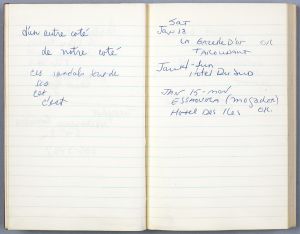 d'un autre coté
de notre coté
ces
ses
cet
c'est
Sat
Jan 13
La Gazelle D'or OK
TAROUDANT
Jan 14 - Sun
Hotel Du Sud
JAN 15 - mon
ESSAOUIRA (mogador)
Hotel Des Iles OK